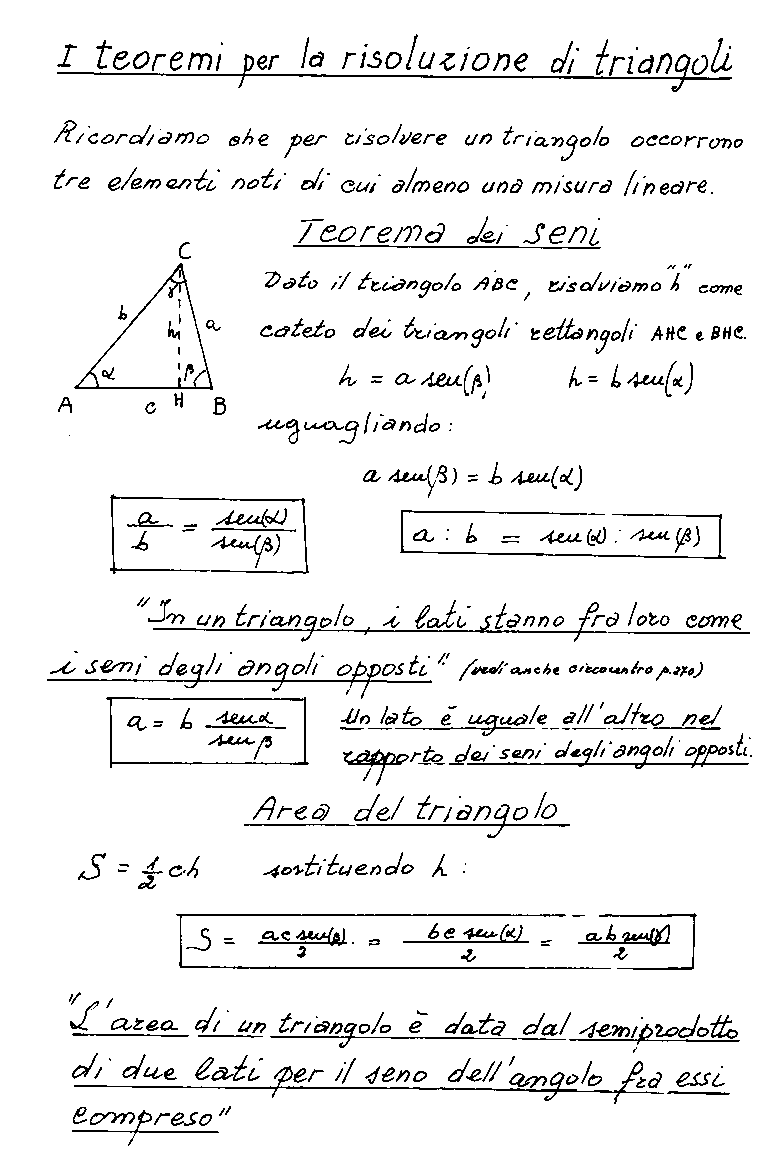 I teoremi per la risoluzione di triangoli
Ricordiamo che per risolvere un triangolo occorrono
tre elementi noti di cui almeno una misura lineare.
Teorema dei seni
C
γ
b
h
a
α
β
A
c
H
B
Dato il triangolo ABC, risolviamo "h" come
cateto dei triangoli rettangoli AHC e BHC.
h = a sen(β) h = b sen(α)
uguagliando:
a sen(β) = b sen(α)
a/b = sen(α)/sen(β)
a : b = sen(α) : sen(β)
"In un triangolo, i lati stanno fra loro come
i seni degli angoli opposti". (vedi anche circocentro p.270)
a = b senα/senβ
Un lato è uguale all'altro nel
rapporto dei seni degli angoli opposti.
Area del triangolo
S = 1/2 ch sostituendo h :
S = ac sen(β)/2 = bc sen(α)/2 = ab sen(γ)/2
"L'area di un triangolo è data dal semiprodotto
di due lati per il seno dell'angolo fra essi
compreso"